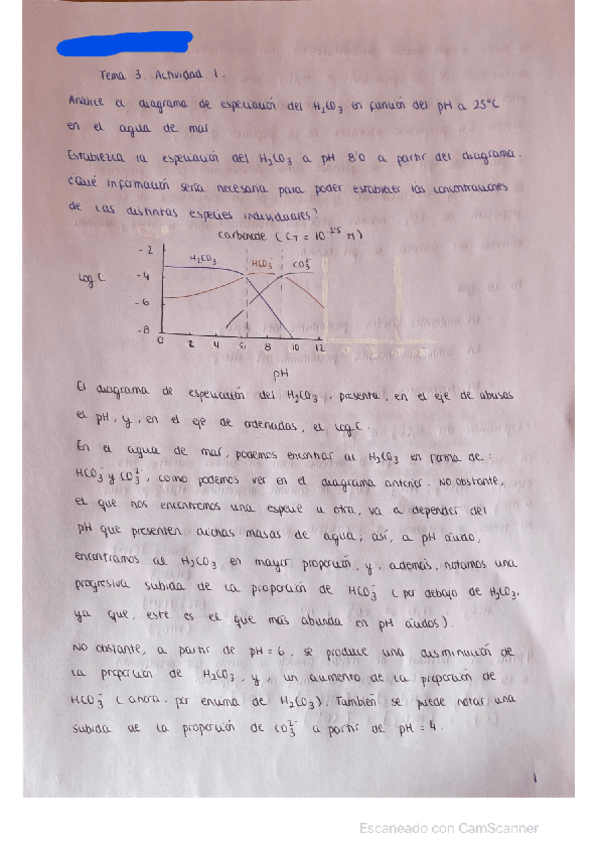 Tema 3. Actividad 1.
Analice el diagrama de especiación del H₂CO₃ en función del pH a 25°C
en el agua de mar
Establezca la especiación del H₂CO₃ a pH 8'0 a partir del diagrama.
¿Qué información sería necesaria para poder establecer las concentraciones
de las distintas especies individuales?
Carbonate (C_T = 10^-2'5 M)
-2
H₂CO₃
HCO₃⁻
CO₃²⁻
Log C
-4
-6
-8
0 2 4 6 8 10 12
pH
El diagrama de especiación del H₂CO₃, presenta, en el eje de abcisas
el pH, y, en el eje de ordenadas, el log C.
En el agua de mar, podemos encontrar al H₂CO₃ en forma de:
HCO₃⁻ y CO₃²⁻, como podemos ver en el diagrama anterior. No obstante,
el que nos encontremos una especie u otra, va a depender del
pH que presenten dichas masas de agua; así, a pH ácido,
encontramos al H₂CO₃ en mayor proporción, y, además, notamos una
progresiva subida de la proporción de HCO₃⁻ (por debajo de H₂CO₃,
ya que, este es el que más abunda en pH ácidos).
No obstante, a partir de pH = 6, se produce una disminución de
la proporción de H₂CO₃, y, un aumento de la proporción de
HCO₃⁻ (ahora, por encima de H₂CO₃). También se puede notar una
subida de la proporción de CO₃²⁻ a partir de pH = 4.
1
Escaneado con CamScanner